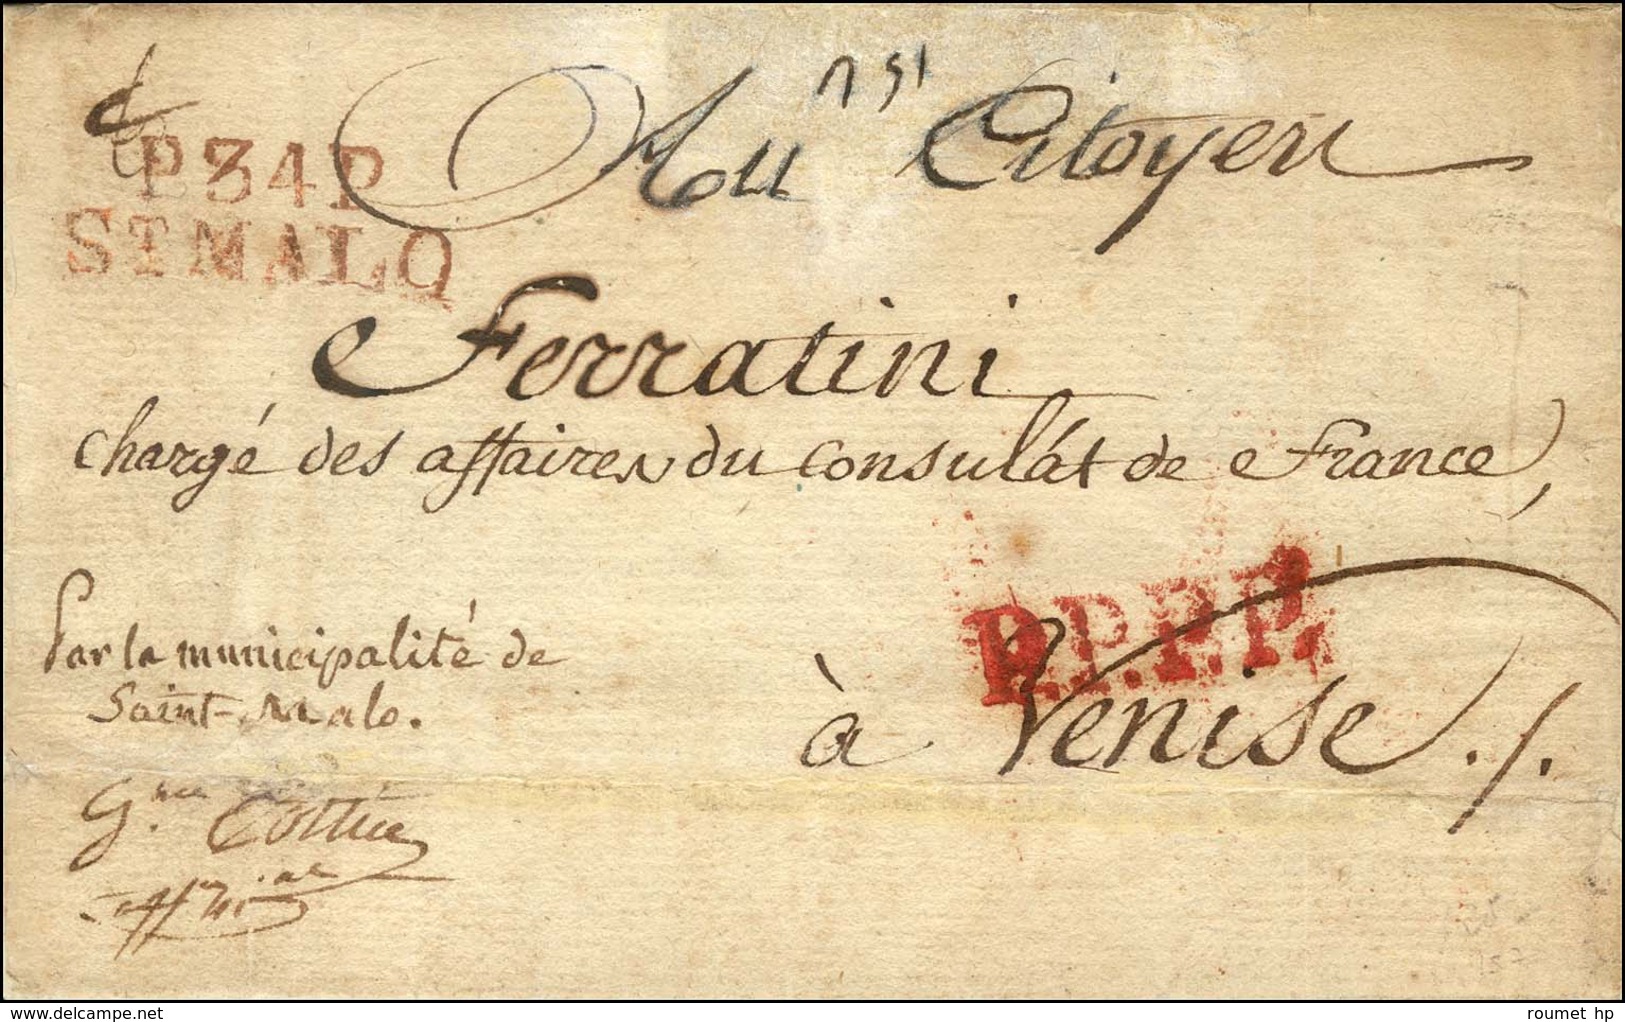 P34P
ST MALO
Au Citoyen
Ferratini
chargé des affaires du consulát de France,
P.P.P.P.
à Venise ./.
Par la municipalité de
Saint-Malo.
www.delcampe.net
roumet hp